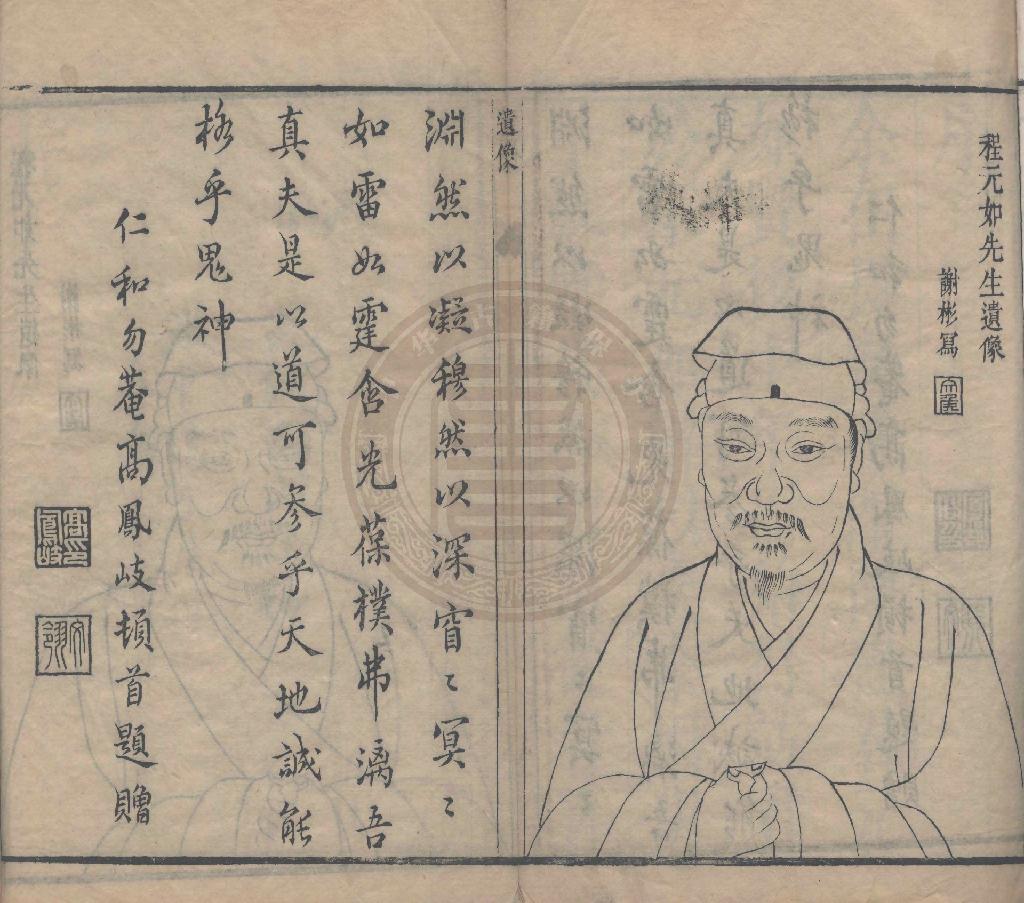 程元如先生遺像
謝彬冩
遺像
淵然以凝穆然以深窅〻冥〻
如雷如霆含光葆樸弗漓吾
真夫是以道可參乎天地誠能
格乎鬼神
仁和勿菴高鳳岐頓首題贈
高鳳岐印